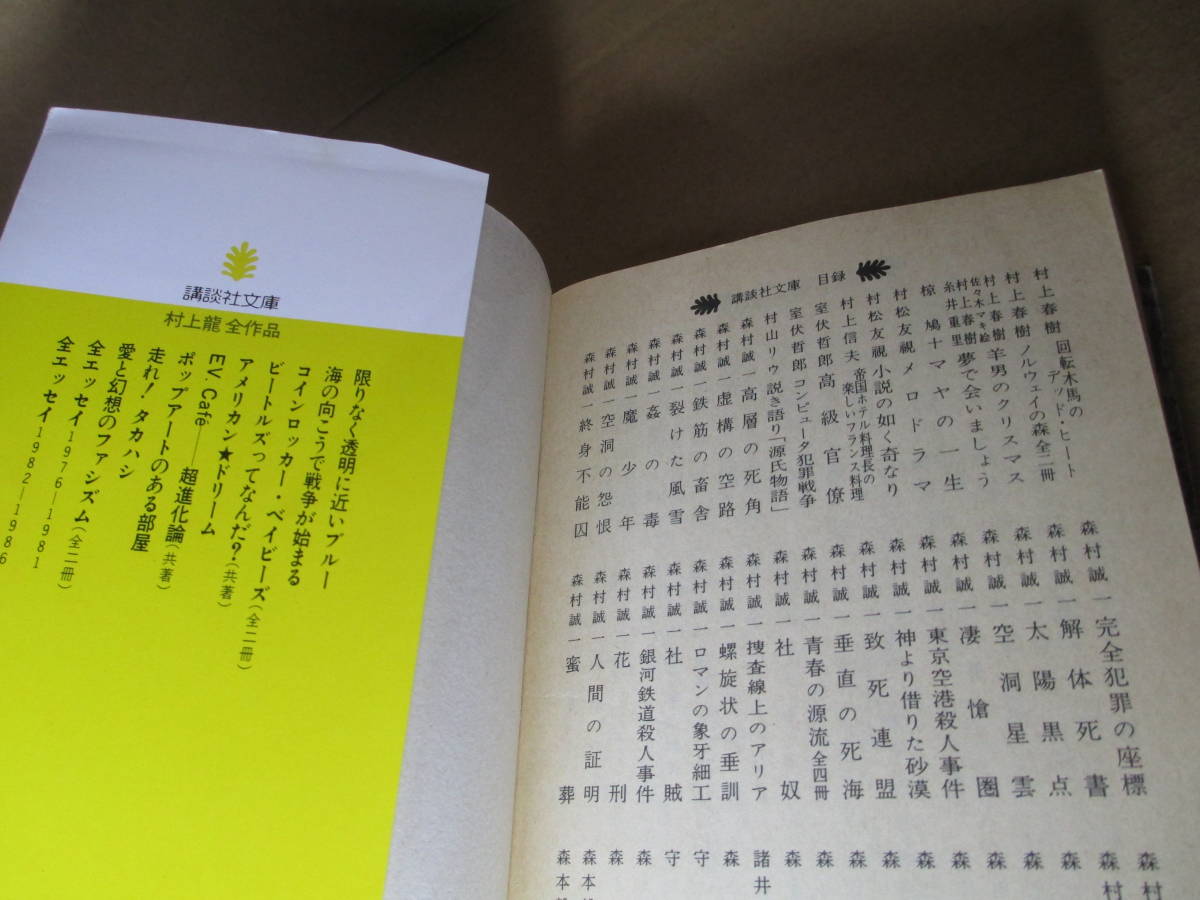 講談社文庫
村上龍 全作品
限りなく透明に近いブルー
海の向こうで戦争が始まる
コインロッカー・ベイビーズ(全二冊)
アメリカン★ドリーム
ビートルズってなんだ?(共著)
EV.Café——超進化論(共著)
ポップアートのある部屋
走れ!タカハシ
愛と幻想のファシズム(全二冊)
全エッセイ1976—1981
全エッセイ1982—1986
講談社文庫 目録
村上春樹 回転木馬のデッド・ヒート
村上春樹 ノルウェイの森 全二冊
村上春樹 佐々木マキ絵 羊男のクリスマス
村上春樹 糸井重里 夢で会いましょう
椋鳩十 マヤの一生
村松友視 メロドラマ
村松友視 小説の如く奇なり
村上信夫 帝国ホテル料理長の楽しいフランス料理
室伏哲郎 高級官僚
室伏哲郎 コンピュータ犯罪戦争
村山リウ 説き語り「源氏物語」
森村誠一 高層の死角
森村誠一 虚構の空路
森村誠一 鉄筋の畜舎
森村誠一 裂けた風雪
森村誠一 姦の毒
森村誠一 魔少年
森村誠一 空洞の怨恨
森村誠一 終身不能囚
森村誠一 完全犯罪の座標
森村誠一 解体死書
森村誠一 太陽黒点
森村誠一 空洞星雲
森村誠一 凄愴圏
森村誠一 東京空港殺人事件
森村誠一 神より借りた砂漠
森村誠一 致死連盟
森村誠一 垂直の死海
森村誠一 青春の源流 全四冊
森村誠一 社奴
森村誠一 捜査線上のアリア
森村誠一 螺旋状の垂訓
森村誠一 ロマンの象牙細工
森村誠一 社賊
森村誠一 銀河鉄道殺人事件
森村誠一 花刑
森村誠一 人間の証明
森村誠一 蜜葬
森村
森村
森
森
森
森
森
森
森
森
諸井
森
守
守
森
森
森本
森本